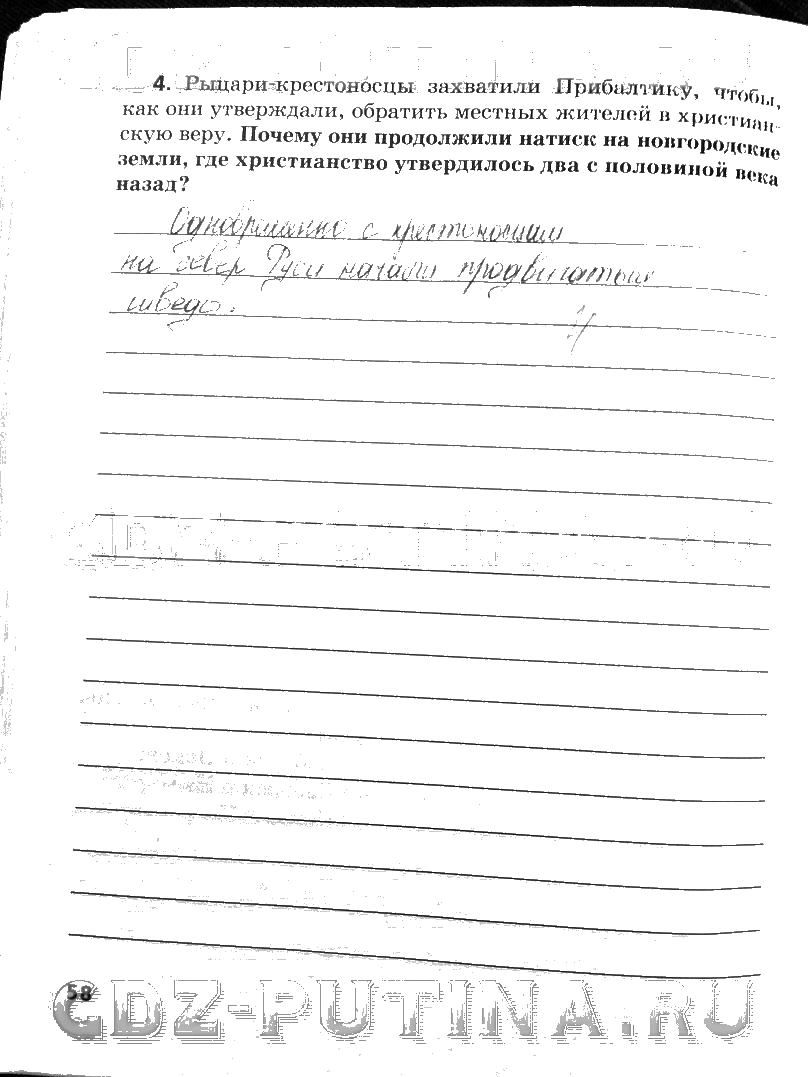 4. Рыцари-крестоносцы захватили Прибалтику, чтобы,
как они утверждали, обратить местных жителей в христиан-
скую веру. Почему они продолжили натиск на новгородские
земли, где христианство утвердилось два с половиной века
назад?
Одновременно с крестоносцами
на север Руси начали продвигаться
шведы.
58
GDZ-PUTINA.RU